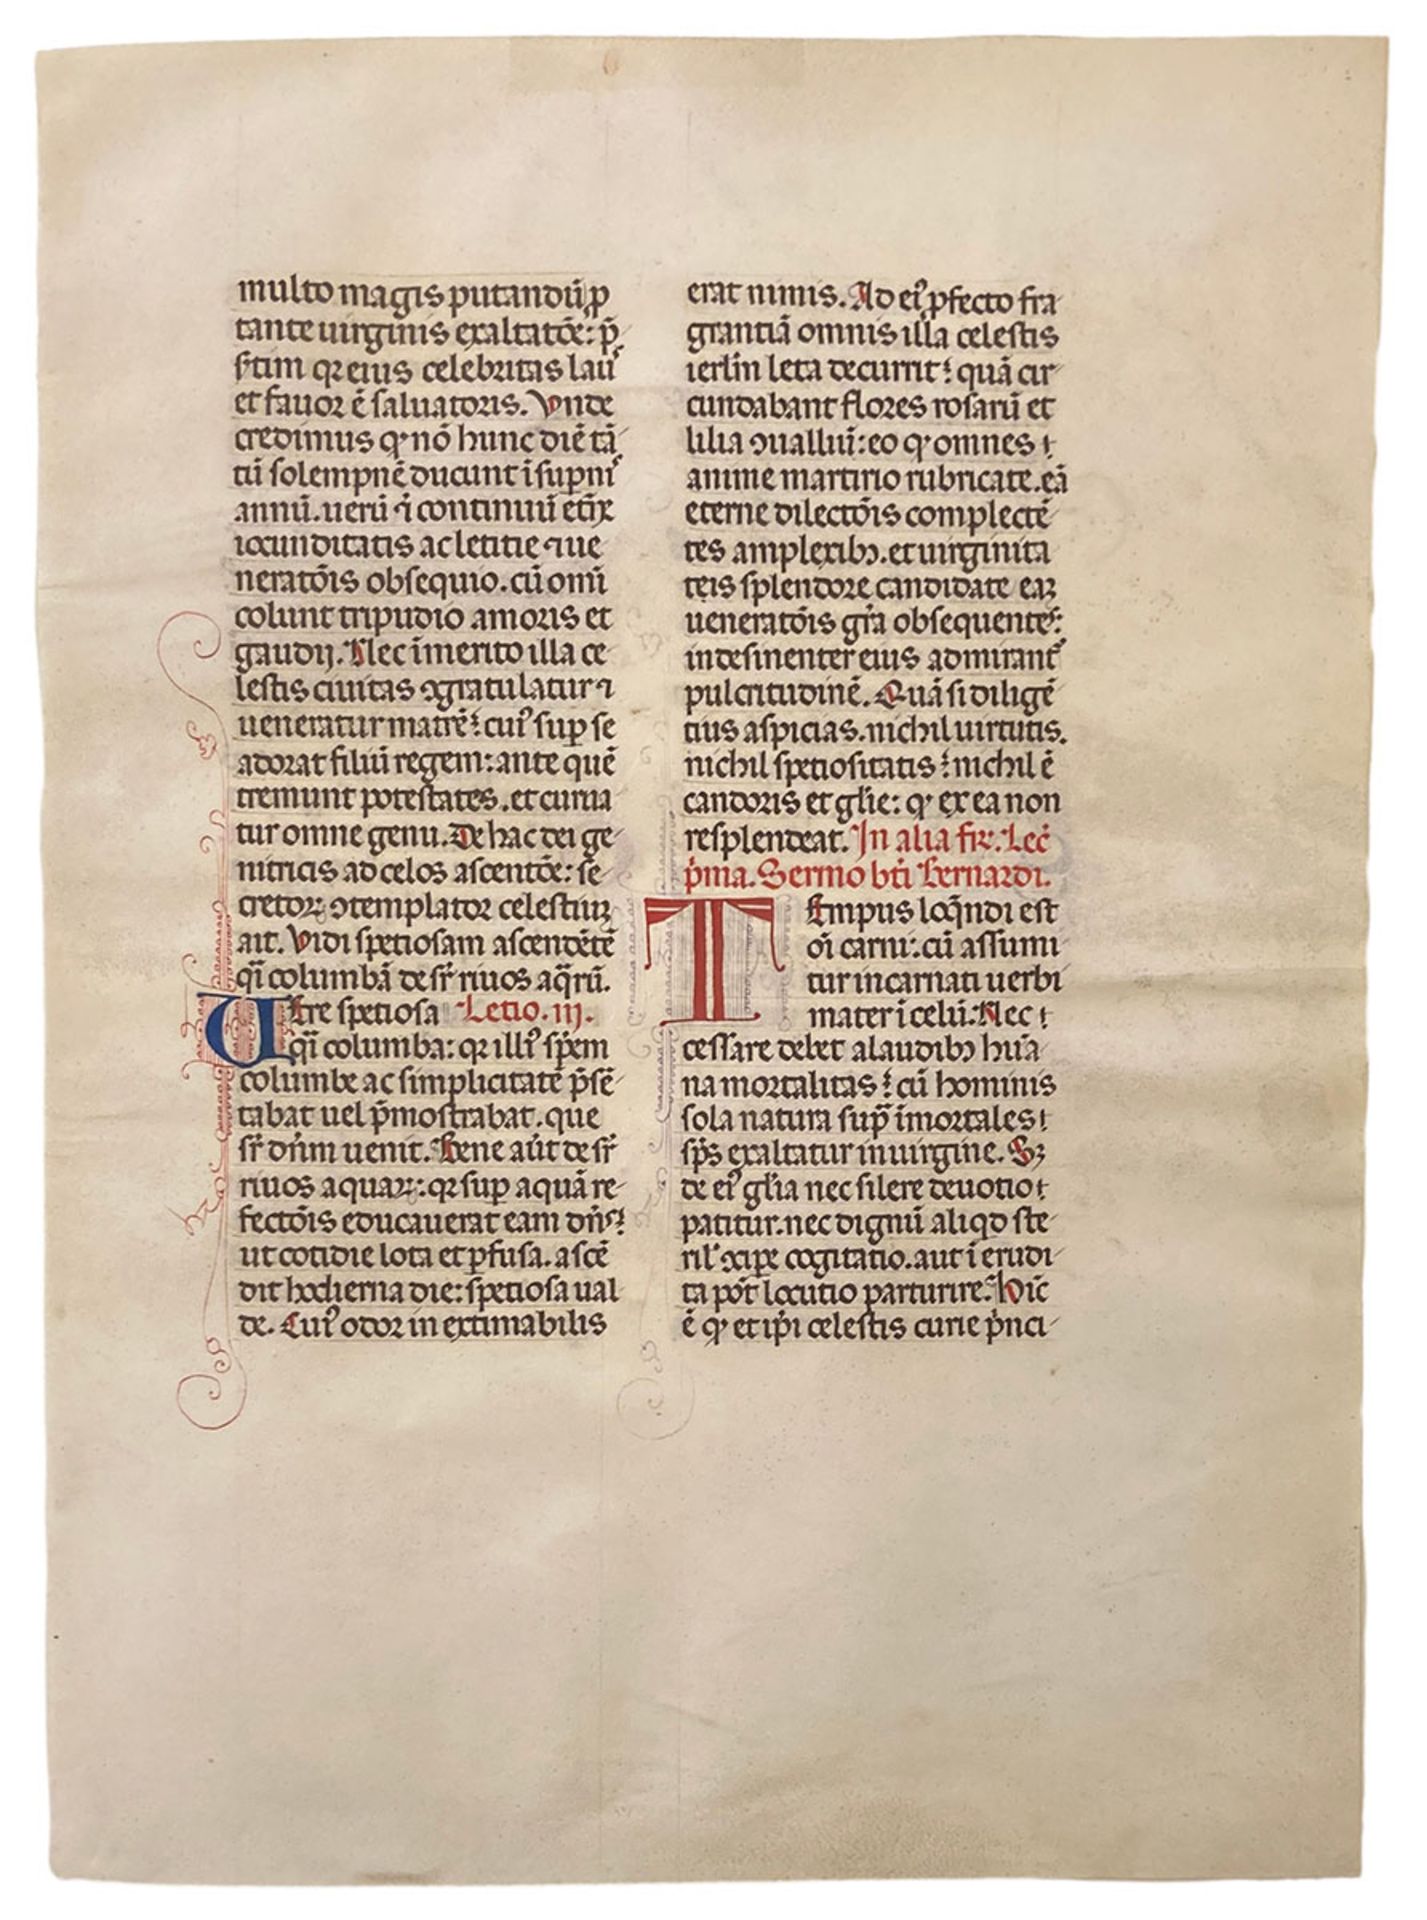 multo magis putandū ꝓ
tante uirginis exaltatōe: p̄
stim qꝛ eius celebritas laus
et fauor ē saluatoris. Vnde
credimus qꝫ nō hunc diē tā
tū solempnē ducunt ī supnis
annū. uerū ⁊ continuū
iocunditatis ac letitie ⁊ ue
neratōis obsequio. cū omī
colunt tripudio amoris et
gaudij. Nec īmerito illa ce
lestis ciuitas ꝯgratulatur ⁊
ueneratur matrē: cuiꝰ suꝑ se
adorat filiū regem: ante quē
tremunt potestates. et curua
tur omne genu. De hac dei ge
nitricis ad celos ascentōe: se
cretoꝝ ꝯtemplator celestiuꝫ
ait. Vidi spetiosam ascendētē
qͣi columbā desr̄ riuos aq̄rū.
Uere spetiosa Letio. iij.
qͣi columba: qꝛ illiꝰ sp̄em
columbe ac simplicitatē p̄sē
tabat uel p̄mostrabat. que
sr̄ dn̄m uenit. Bene aūt de sr̄
riuos aquaꝝ: qꝛ suꝑ aquā re
fectōis educauerat eam dn̄s:
ut cotidie lota et ꝑfusa. ascē
dit hodierna die: spetiosa ual
de. Cuiꝰ odor in extimabilis
erat nimis. Ad eiꝰ ꝓfecto fra
grantiā omnis illa celestis
ierl̄m leta decurrit: quā cir
cundabant flores rosarū et
lilia ꝯualluī: eo qꝫ omnes
anime martirio rubricate. eā
eterne dilectōis complectē
tes amplexibꝫ. et uirginita
teis splendore candidate eaꝝ
ueneratōis gr̄a obsequentes:
indesinenter eius admirant
pulcritudinē. Quā si diligē
tius aspicias. nichil uirtutis.
nichil spetiositatis: nichil ē
candoris et gl̄ie: qꝫ ex ea non
resplendeat. In alia fr̄. Lec̄
p̄ma. Sermo bt̄i Bernardi.
Tempus loq̄ndi est
oī carni: cū assumi
tur incarnati uerbi
mater ī celū. Nec
cessare debet a laudibꝫ hūa
na mortalitas: cū hominis
sola natura supͣ īmortales
sp̄s exaltatur in uirgine. Sꝫ
de eiꝰ gl̄ia nec silere deuotio
patitur. nec dignū aliqd ste
ril' ꝯciꝑe cogitatio. aut ī erudi
ta pōt locutio parturire. Hīc
ē qꝫ et ip̄i celestis curie p̄nci